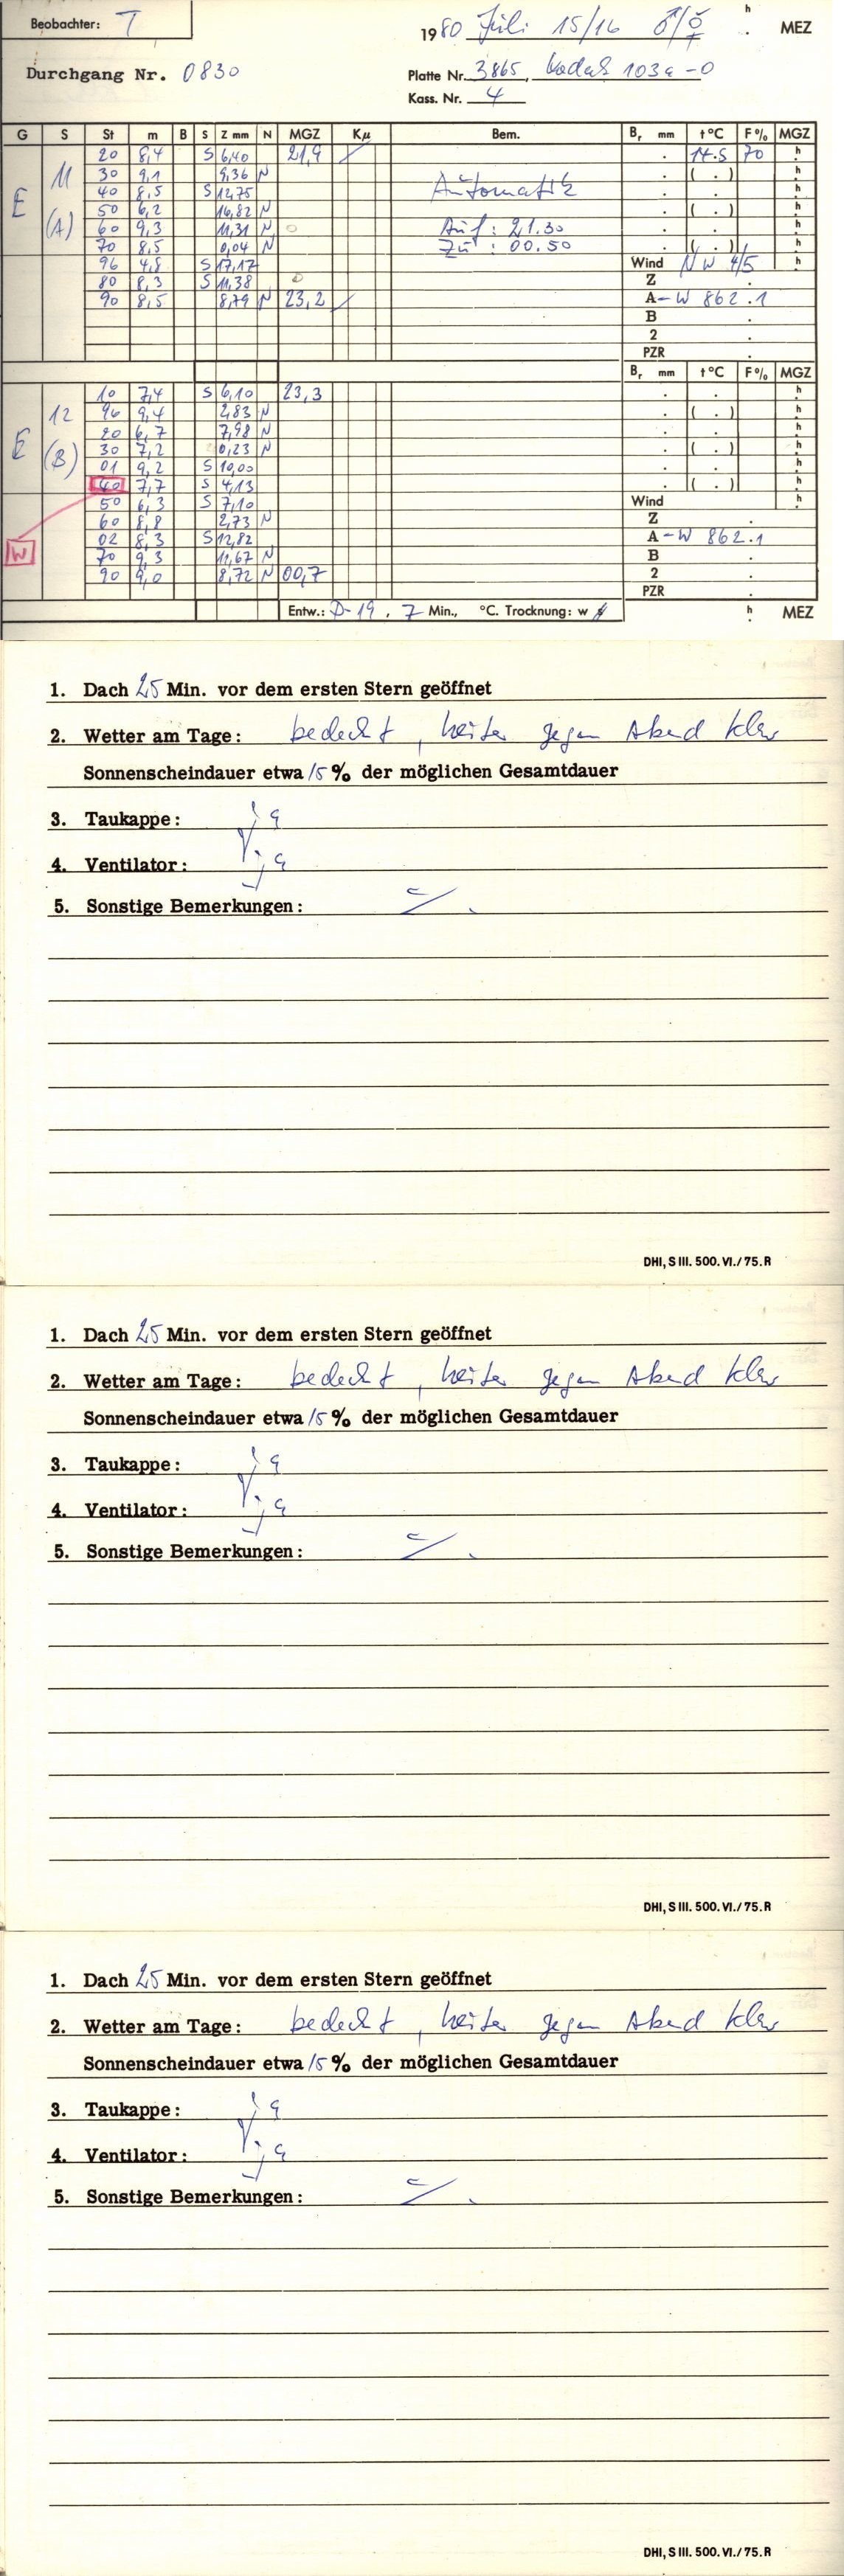 Beobachter: T
1980 Juli 15/16 ♂/☿ h . MEZ
Durchgang Nr. 0830
Platte Nr. 3865, Kodak 103a-O
Kass. Nr. 4
G S St m B S Z mm N MGZ Kμ Bem. B, mm t°C F% MGZ
E 11 (A)
20 8,4 S 6,40 21,9 14.5 70 h
30 9,1 9,36 N ( . )
40 8,5 S 12,75 Automatik h
50 6,2 16,82 N ( . ) h
60 9,3 11,31 N Auf: 21.30 h
70 8,5 0,04 N Zu: 00.50 ( . ) h
96 4,8 S 17,17 Wind NW 4/5 h
80 8,3 S 11,38 Z .
90 8,5 8,79 N 23,2 A-W 862.1
B .
2 .
PZR .
B, mm t°C F% MGZ
E 12 (B)
10 7,4 S 6,10 23,3 h
96 9,4 2,83 N ( . ) h
20 6,7 7,98 N h
30 7,2 0,23 N ( . ) h
01 9,2 S 10,00 h
40 7,7 S 4,13 ( . ) h
50 6,3 S 7,10 Wind h
60 8,8 2,73 N Z .
W 02 8,3 S 12,82 A-W 862.1
70 9,3 11,67 N B .
90 9,0 8,72 N 00,7 2 .
PZR .
Entw.: D-19, 7 Min., °C. Trocknung: w h . MEZ
1. Dach 25 Min. vor dem ersten Stern geöffnet
2. Wetter am Tage: bedeckt, heiter gegen Abend klar
Sonnenscheindauer etwa 15% der möglichen Gesamtdauer
3. Taukappe: ja
4. Ventilator: ja
5. Sonstige Bemerkungen:
DHI, S III. 500. VI./75. R
1. Dach 25 Min. vor dem ersten Stern geöffnet
2. Wetter am Tage: bedeckt, heiter gegen Abend klar
Sonnenscheindauer etwa 15% der möglichen Gesamtdauer
3. Taukappe: ja
4. Ventilator: ja
5. Sonstige Bemerkungen:
DHI, S III. 500. VI./75. R
1. Dach 25 Min. vor dem ersten Stern geöffnet
2. Wetter am Tage: bedeckt, heiter gegen Abend klar
Sonnenscheindauer etwa 15% der möglichen Gesamtdauer
3. Taukappe: ja
4. Ventilator: ja
5. Sonstige Bemerkungen:
DHI, S III. 500. VI./75. R